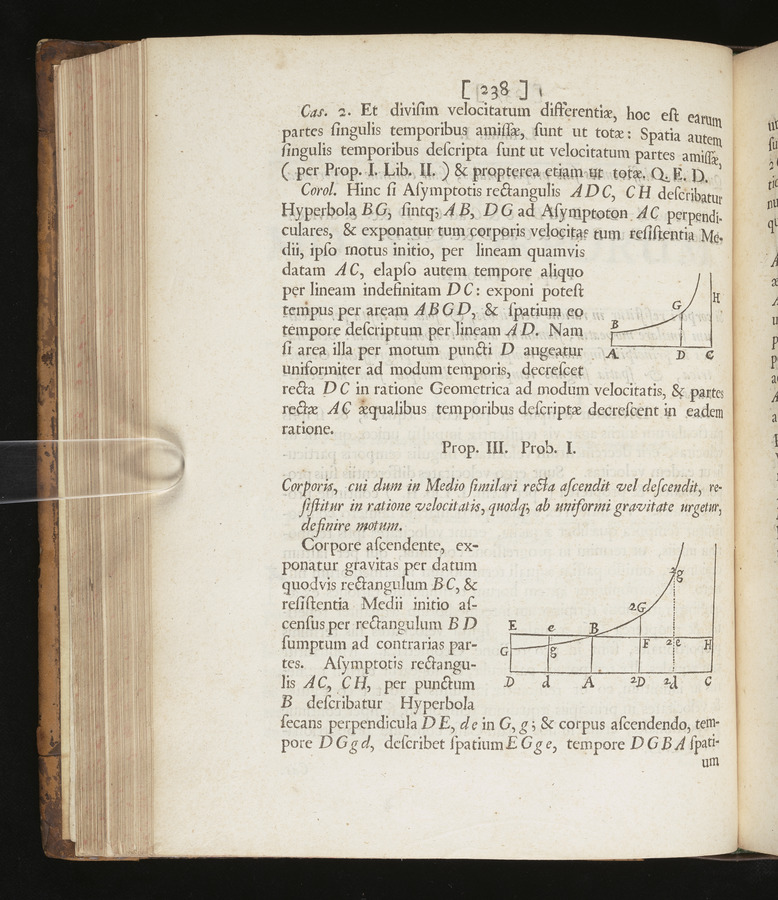 [ 238 ]
Cas. 2. Et divisim velocitatum differentiæ, hoc est earum
partes singulis temporibus amissæ, sunt ut totæ: Spatia autem
singulis temporibus descripta sunt ut velocitatum partes amissæ,
( per Prop. I. Lib. II. ) & propterea etiam ut totæ. Q. E. D.
Corol. Hinc si Asymptotis rectangulis ADC, CH describatur
Hyperbola BG, sintq; AB, DG ad Asymptoton AC perpendi-
culares, & exponatur tum corporis velocitas tum resistentia Me-
dii, ipso motus initio, per lineam quamvis
datam AC, elapso autem tempore aliquo
per lineam indefinitam DC: exponi potest
tempus per aream ABGD, & spatium eo
tempore descriptum per lineam AD. Nam
si area illa per motum puncti D augeatur
uniformiter ad modum temporis, decrescet
recta DC in ratione Geometrica ad modum velocitatis, & partes
rectæ AC æqualibus temporibus descriptæ decrescent in eadem
ratione.
H
G
B
A D C
Prop. III. Prob. I.
Corporis, cui dum in Medio similari recta ascendit vel descendit, re-
sistitur in ratione velocitatis, quodq; ab uniformi gravitate urgetur,
definire motum.
Corpore ascendente, ex-
ponatur gravitas per datum
quodvis rectangulum BC, &
resistentia Medii initio as-
census per rectangulum BD
sumptum ad contrarias par-
tes. Asymptotis rectangu-
lis AC, CH, per punctum
B describatur Hyperbola
secans perpendicula DE, de in G, g; & corpus ascendendo, tem-
pore DGgd, describet spatium EGge, tempore DGBA spati-
um
2g
2G
E e B
G g F 2e H
D d A 2D 2d C